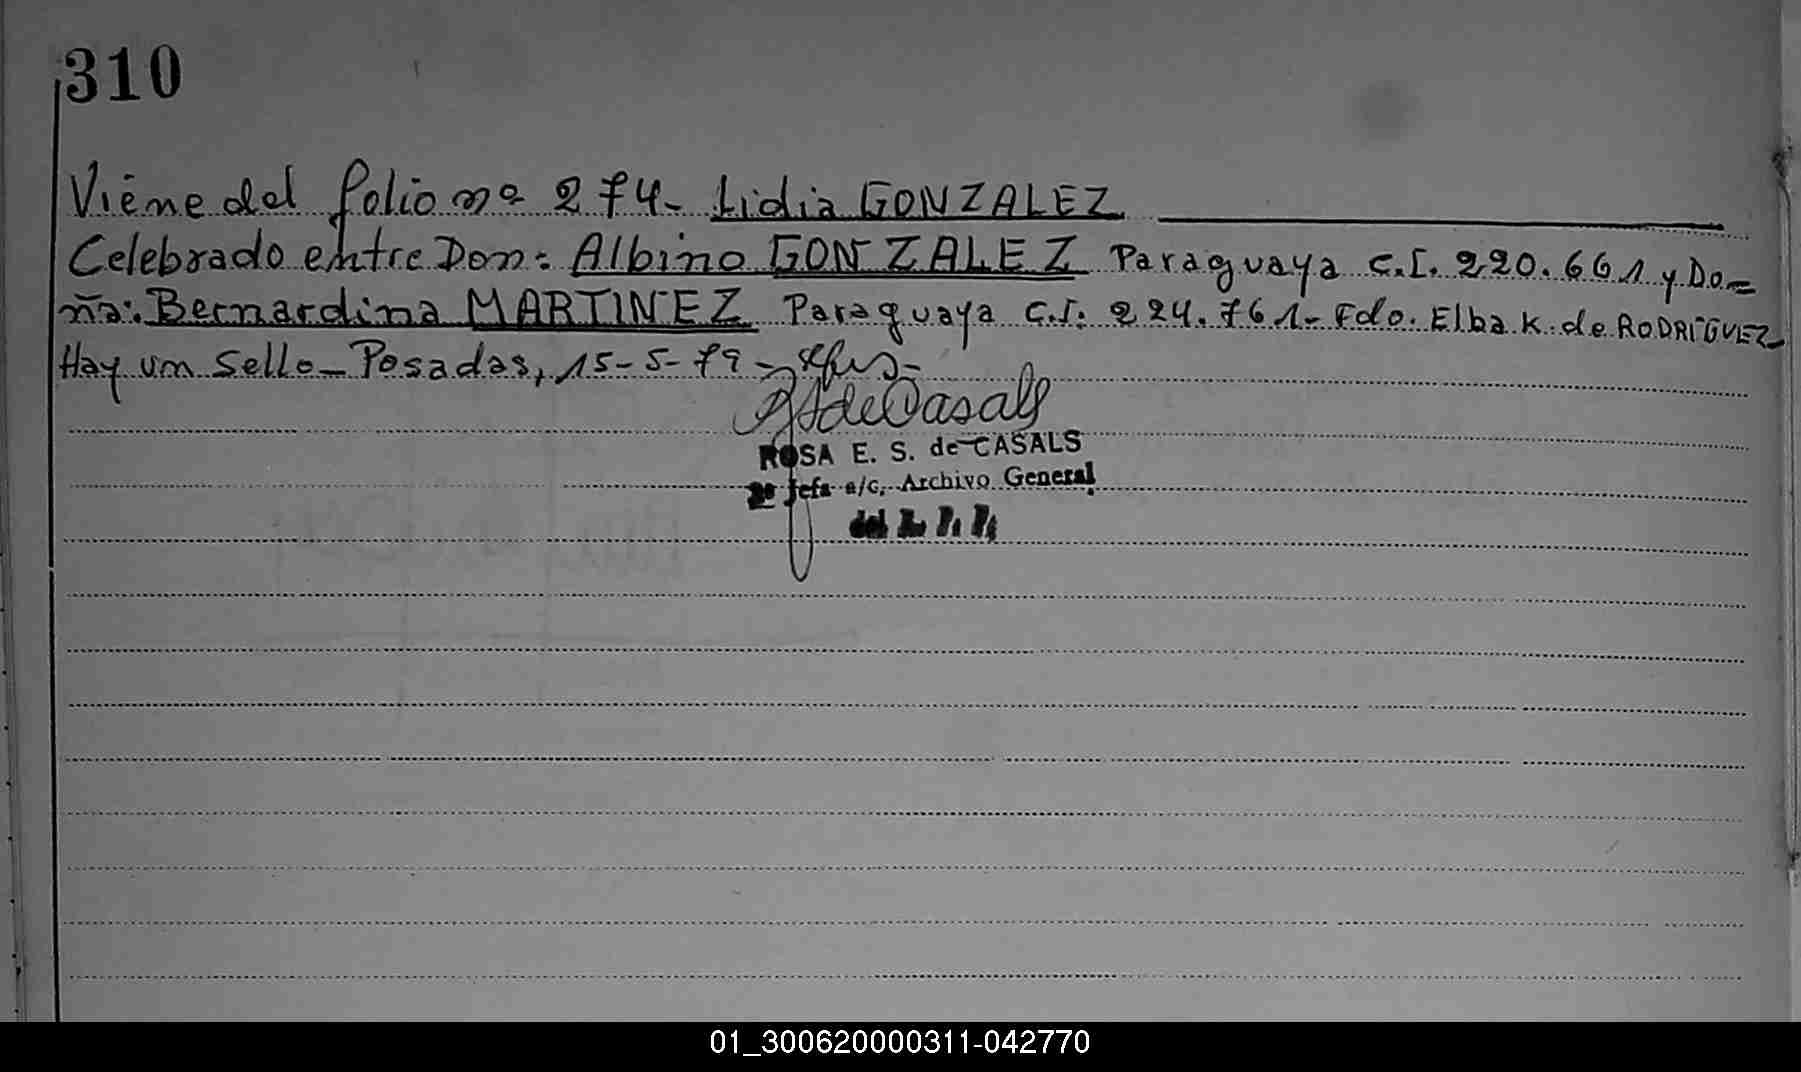 310
Viene del folio nº 274- Lidia GONZALEZ
Celebrado entre Don: Albino GONZALEZ Paraguaya C.I. 220.661 y Do=
ña: Bernardina MARTINEZ Paraguaya C.I: 224.761- Fdo. Elba K. de RODRIGUEZ-
Hay un Sello- Posadas, 15-5-79-
de Casals
ROSA E. S. de CASALS
2º Jefa a/c. Archivo General
del
01_300620000311-042770